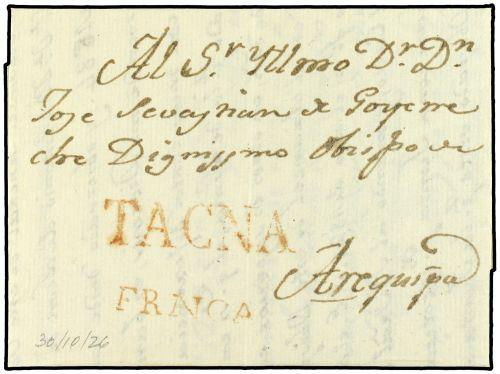 Al Sr Yllmo Dr Dn
Jose Sevastian de Goyene
che Dignissmo Obispo de
TACNA
Arequipa
FRNCA
30/10/26